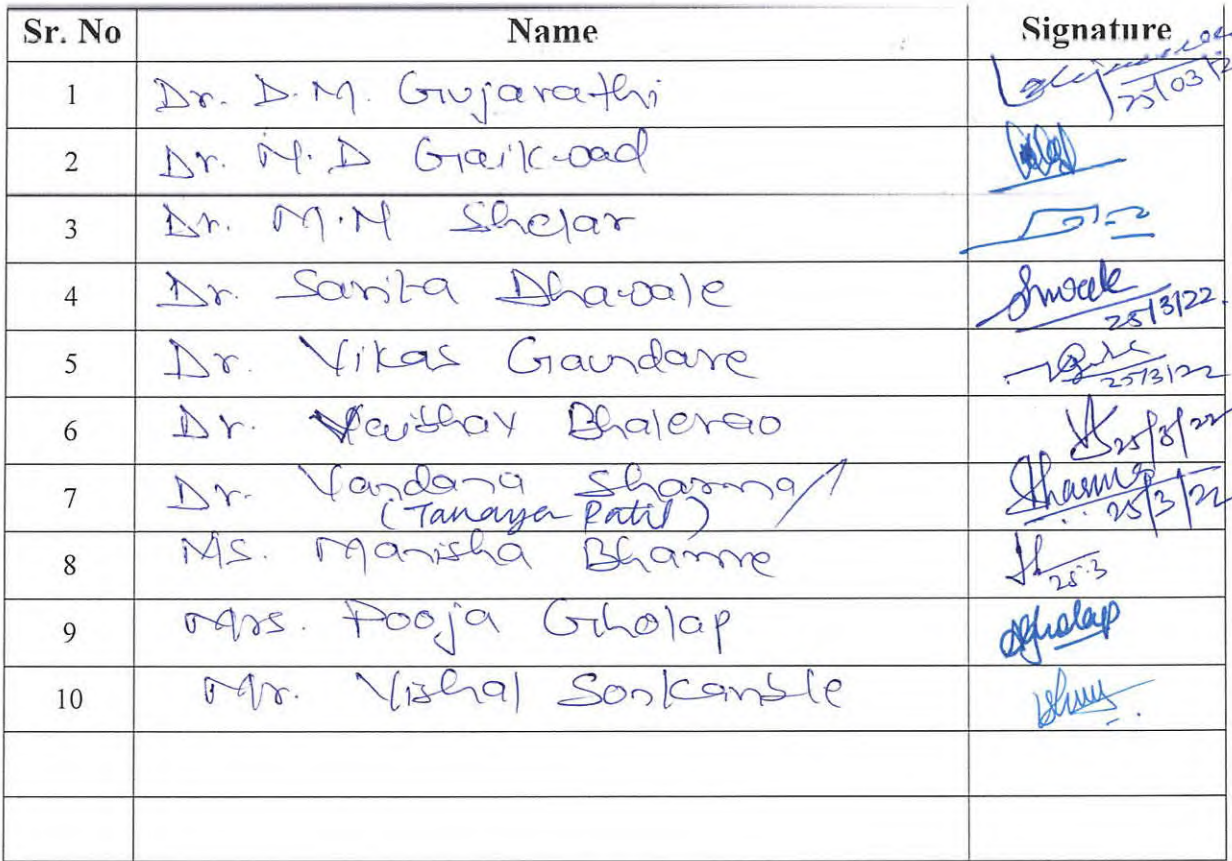 Sr. No Name Signature
1 Dr. D. M. Gujarathi 25/03/2
2 Dr. M. D Gaikwad
3 Dr. M. N Shelar
4 Dr. Sarita Dhawale 25/3/22.
5 Dr. Vikas Gaundare 25/3/22
6 Dr. Vaibhav Bhalerao 25/3/22
7 Dr. Vandana Sharma / Sharma 25/3/22
(Tanaya Patil)
8 Ms. Manisha Bhamre 25.3
9 Mrs. Pooja Gholap Gholap
10 Mr. Vishal Sonkamble